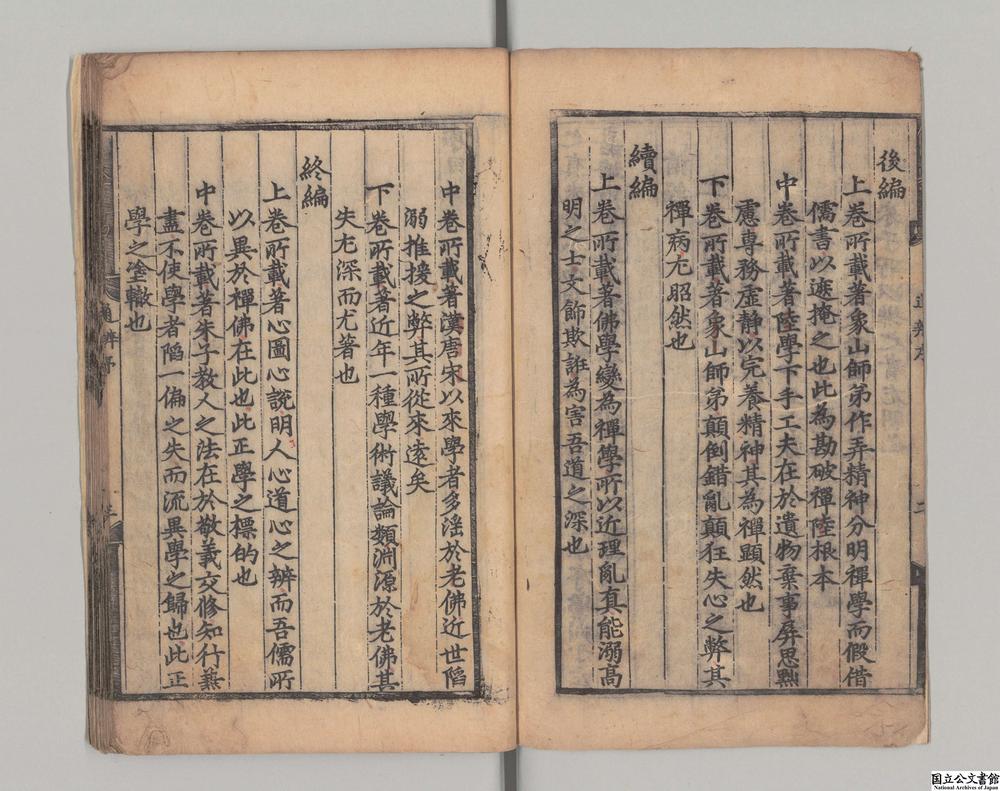 後編
上卷所載著象山師弟作弄精神分明禪學而假借
儒書以遮掩之也此為勘破禪陸根本
中卷所載著陸學下手工夫在於遺物棄事屏思黜
慮專務虛静以完養精神其為禪顯然也
下卷所載著象山師弟顛倒錯亂顛狂失心之弊其
禪病尤昭然也
續編
上卷所載著佛學變為禪學所以近理亂真能溺髙
明之士文飾欺誑為害吾道之深也
中卷所載著漢唐宋以來學者多淫於老佛近世陷
溺推援之弊其所從來遠矣
下卷所載著近年一種學術議論類淵源於老佛其
失尤深而尤著也
終編
上卷所載著心圖心説明人心道心之辨而吾儒所
以異於禪佛在此也此正學之標的也
中卷所載著朱子教人之法在於敬義交修知行兼
盡不使學者陷一偏之失而流異學之歸也此正
學之塗轍也
通辨序
國立公文書館
National Archives of Japan